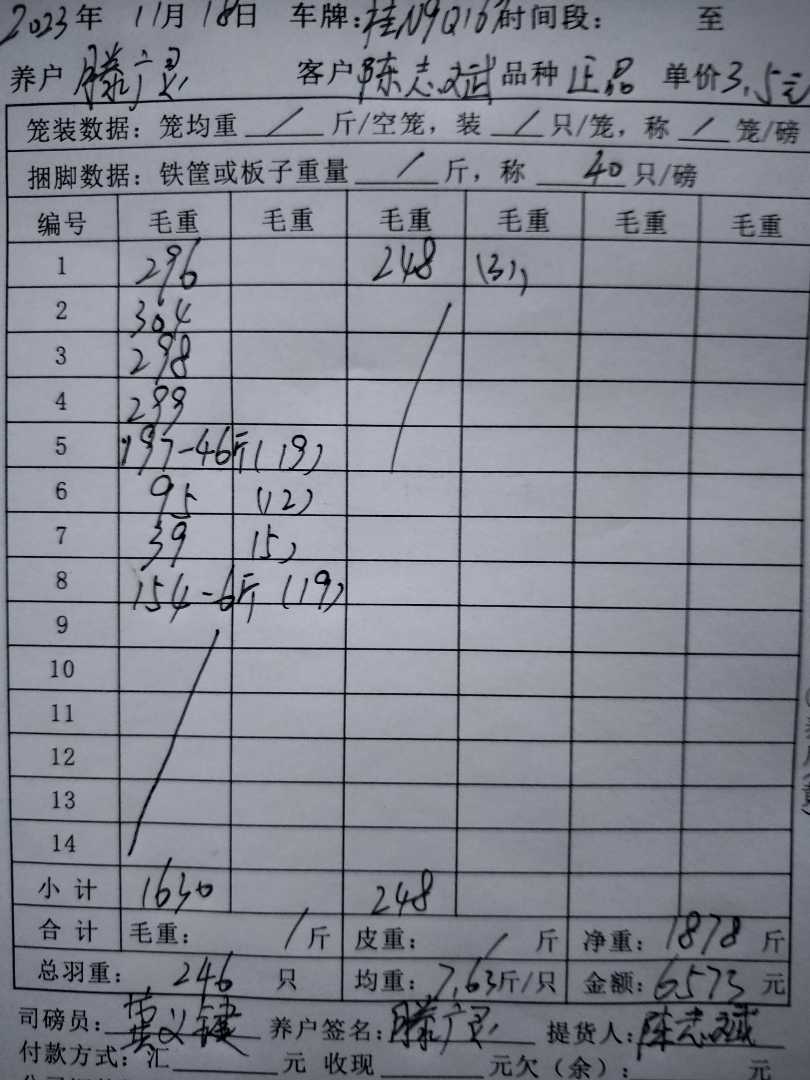 2023年 11月 18日 车牌:桂N9Q167时间段: 至
养户 滕广灵 客户 陈志斌 品种 正品 单价3.5元
笼装数据: 笼均重 / 斤/空笼, 装 / 只/笼, 称 / 笼/磅
捆脚数据: 铁筐或板子重量 / 斤, 称 40 只/磅
编号 毛重 毛重 毛重 毛重 毛重 毛重
1 296 248 (31)
2 304
3 298
4 299
5 197-46斤(19)
6 95 (12)
7 39 (5)
8 154-6斤 (19)
9
10
11
12
13
14
小计 1630 248
合计 毛重: / 斤 皮重: / 斤 净重: 1878 斤
总羽重: 246 只 均重: 7.63斤/只 金额: 6573 元
司磅员: 黄义健 养户签名: 滕广灵 提货人: 陈志斌
付款方式: 汇 元 收现 元欠(余): 元